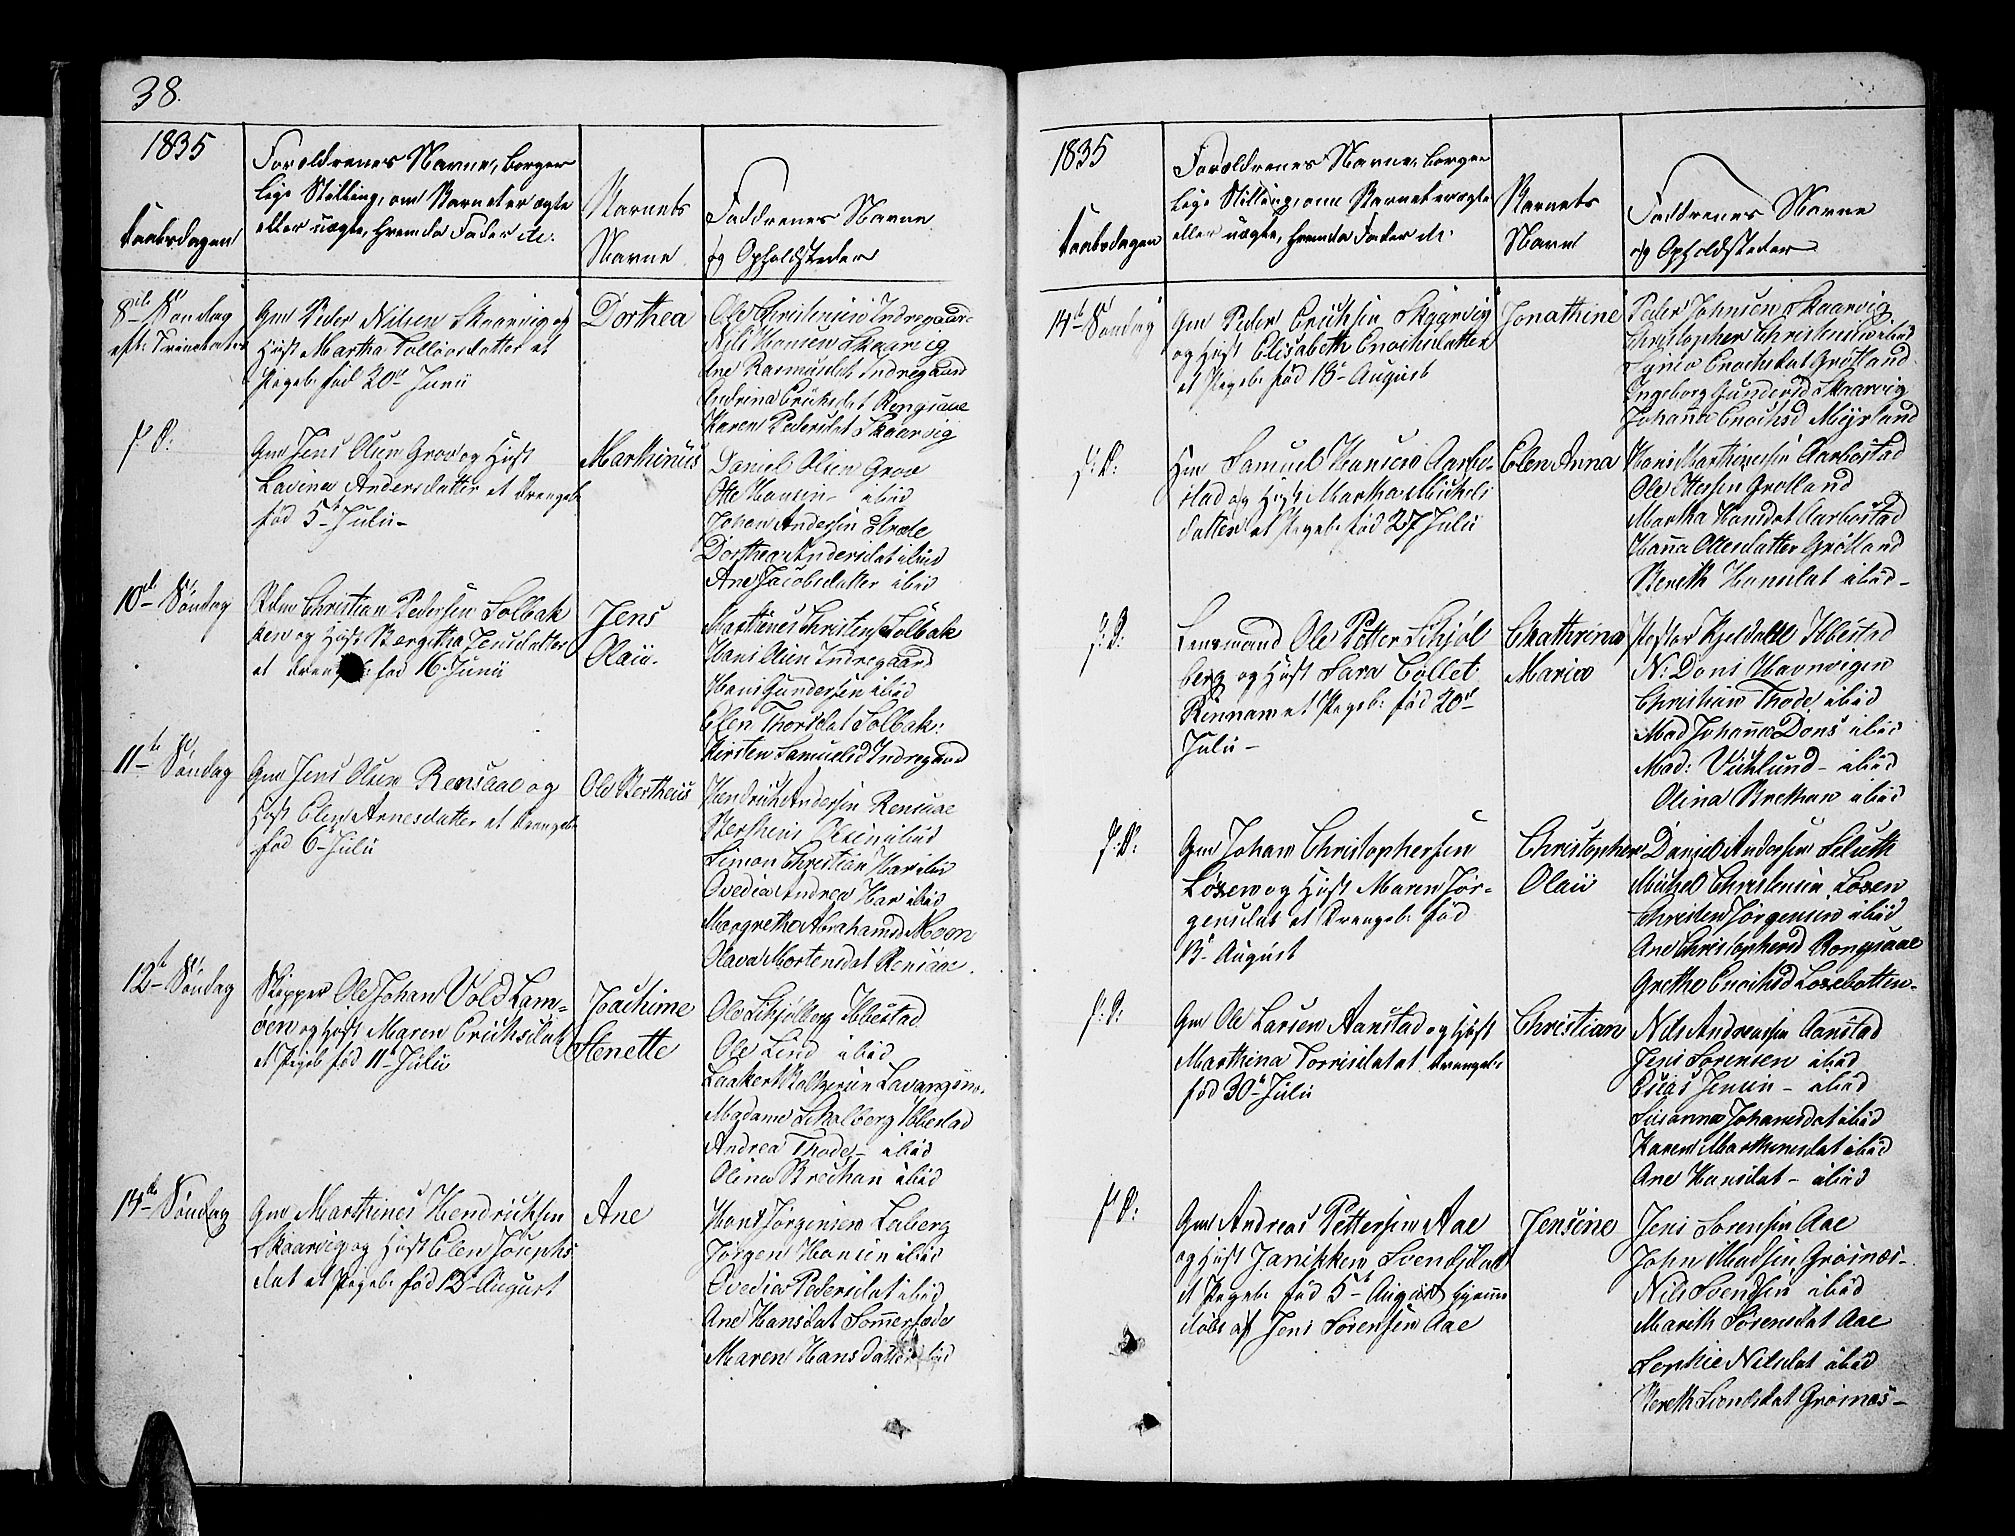 38.
1835
Daabsdagen
Forældrenes Navne, borger
lige Stilling, om Barnet er ægte
eller uægte, fremda Fader etc.
Barnets
Navne
Faddrenes Navne
og Opholdsteder
8de Søndag
eft: Trinitatis
Gm Peder Nilsen Skaarvig og
Hust Martha Tollovsdatter et
Pigeb: fød 20de Junii
Dorthea
Ole Christensen Indregaard
Nils Hansen Skaarvig
Ane Rasmusdat Indregaard
Andrina Eriksdat Rengsaae
Karen Pedersdat Skaarvig
p: D:
Gm Jens Olsen Grov og Hust
Lavina Andersdatter et Drengeb
fød 5te Julii
Marthinus
Daniel Olsen Grov
Otte Hansen ibid
Johan Andersen
Dorthea Andersdat ibid
Ane Jacobsdatter ibid
10de Søndag
Christian Pedersen Solbak
ken og Hust Bergitha Jensdatter
et Drengeb: fød 16 Junii
Jens
Olaii.
Marthines Christens Solbak
Hans Olsen Indregaard
Hans Gundersen ibid
Elen Thorsdat Solbak:
Kirsten Samuelsd Indregaard
11te Søndag
Gm Jens Olsen Rensaae og
Hust Elen Arnesdatter et Drengeb
fød 6te Julii
Ole Bertheus
Hendrich Andersen Rensaae
Bertheus Olsen ibid
Simon Christian Har ibid
Ovedia Andrea Har ibid
Margrethe Abrahamsd Moen
Olava Mortensdat Rensaae.
12te Søndag
Skipper Ole Johan Vold Lam-
øen og Hust Maren Erichsdat
et Pigeb fød 11te Julii
Joachime
Stenette
Ole Schjølberg Ibbestad
Ole Lind ibid
Laakert Lavangsnes.
Madame Schølberg Ibbestad
Andrea Thode ibid
Olina Brechan ibid
14de Søndag
Gm Marthines Hendrichsen
Skaarvig og Hust Elen Josephs
dat et Pigeb fød 13de August
Ane
Hans Jørgensen Leiberg
Jørgen Hansen ibid
Ovedia Pedersdat ibid
Ane Hansdat Sommersæde
Maren Hansdatter ibid
1835
Daabsdagen
Forældrenes Navne, borger
lige Stilling, om Barnet er ægte
eller uægte, fremda Fader etc.
Barnets
Navne
Faddrenes Navne
og Opholdsteder
14de Søndag
Gm Peder Erichsen Skaarvig
og Hust Elisabeth Enochsdatter
et Pigeb: fød 18de August
Jonathine
Peder Johnsen Skaarvig
Christopher Christensen ibid
Enochsdat Grøtland
Ingeborg Gundersd Skaarvig
Johanna Enochsd Myrland
p: D:
Hm Samuel Hansen Aarbo-
stad og Hust Martha Michels
datter et Pigeb fød 27 Julii
Elen Anna
Hans Marthinesen Aarbostad
Ole Ottesen Grøtland
Martha Hansdat Aarbostad
Hanna Ottesdatter Grøtland
Bereth Hansdat ibid
p: D:
Lensmand Ole Petter Schjøl
berg og Hust Sara Collet
Rinnam et Pigeb: fød 20de
Julii
Chathrina
Maria
Pastor Kjeldahl Ibbestad
N: Dons Havnvigen
Christian Thode ibid
Mad Johanna Dons ibid
Mad: Vichlund ibid
Olina Brekhan ibid
p: D:
Gm Johan Christophersen
Løsen og Hust Maren Jør-
gensdat et Drengeb: fød
13de August
Christopher
Olaii
Daniel Andersen
Michel Christensen Løsen
Christen Jørgensen ibid
Ane Christophersd Rengsaae
Grethe Enochsd Løsebotten.
p: D:
Gm Ole Larsen Aanstad og Hust
Marthina Torrisdat et Drengeb:
fød 30te Julii
Christian
Nils Andreassen Aanstad
Jens Sørensen ibid
Esias Jensen ibid
Susanna Johansdat ibid
Karen Marthinesdat ibid
Ane Hansdat ibid
p: D:
Gm Andreas Pettersen Aae
og Hust Janikken Svendsdat
et Pigeb fød 5te August hjemme
døbt af Jens Sørensen Aae
Jensine
Jens Sørensen Aae
John Madsen Grøsnæs
Nils Svendsen ibid
Marith Sørensdat Aae
Sophie Nilsdat ibid
Bereth Svendsdat Grøsnæs